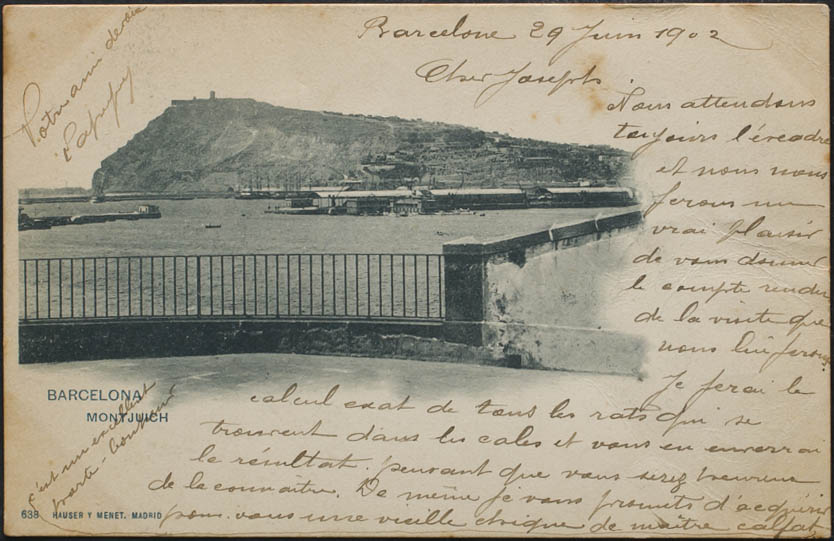 Barcelone 29 Juin 1902
Cher Joseph
Nous attendons
toujours l'escadre
et nous nous
ferons un
vrai plaisir
de vous donner
le compte rendu
de la visite que
nous lui ferons
Je ferai le
calcul exat de tous les rats qui se
trouvent dans les cales et vous en enverrai
le résultat. pensant que vous serez heureux
de le connaître. De même je vous promets d'acquérir
pour vous une vieille chique de maître calfat
c'est un excellent
porte-bonheur
Votre ami
BARCELONA
MONTJUICH
638 HAUSER Y MENET. MADRID